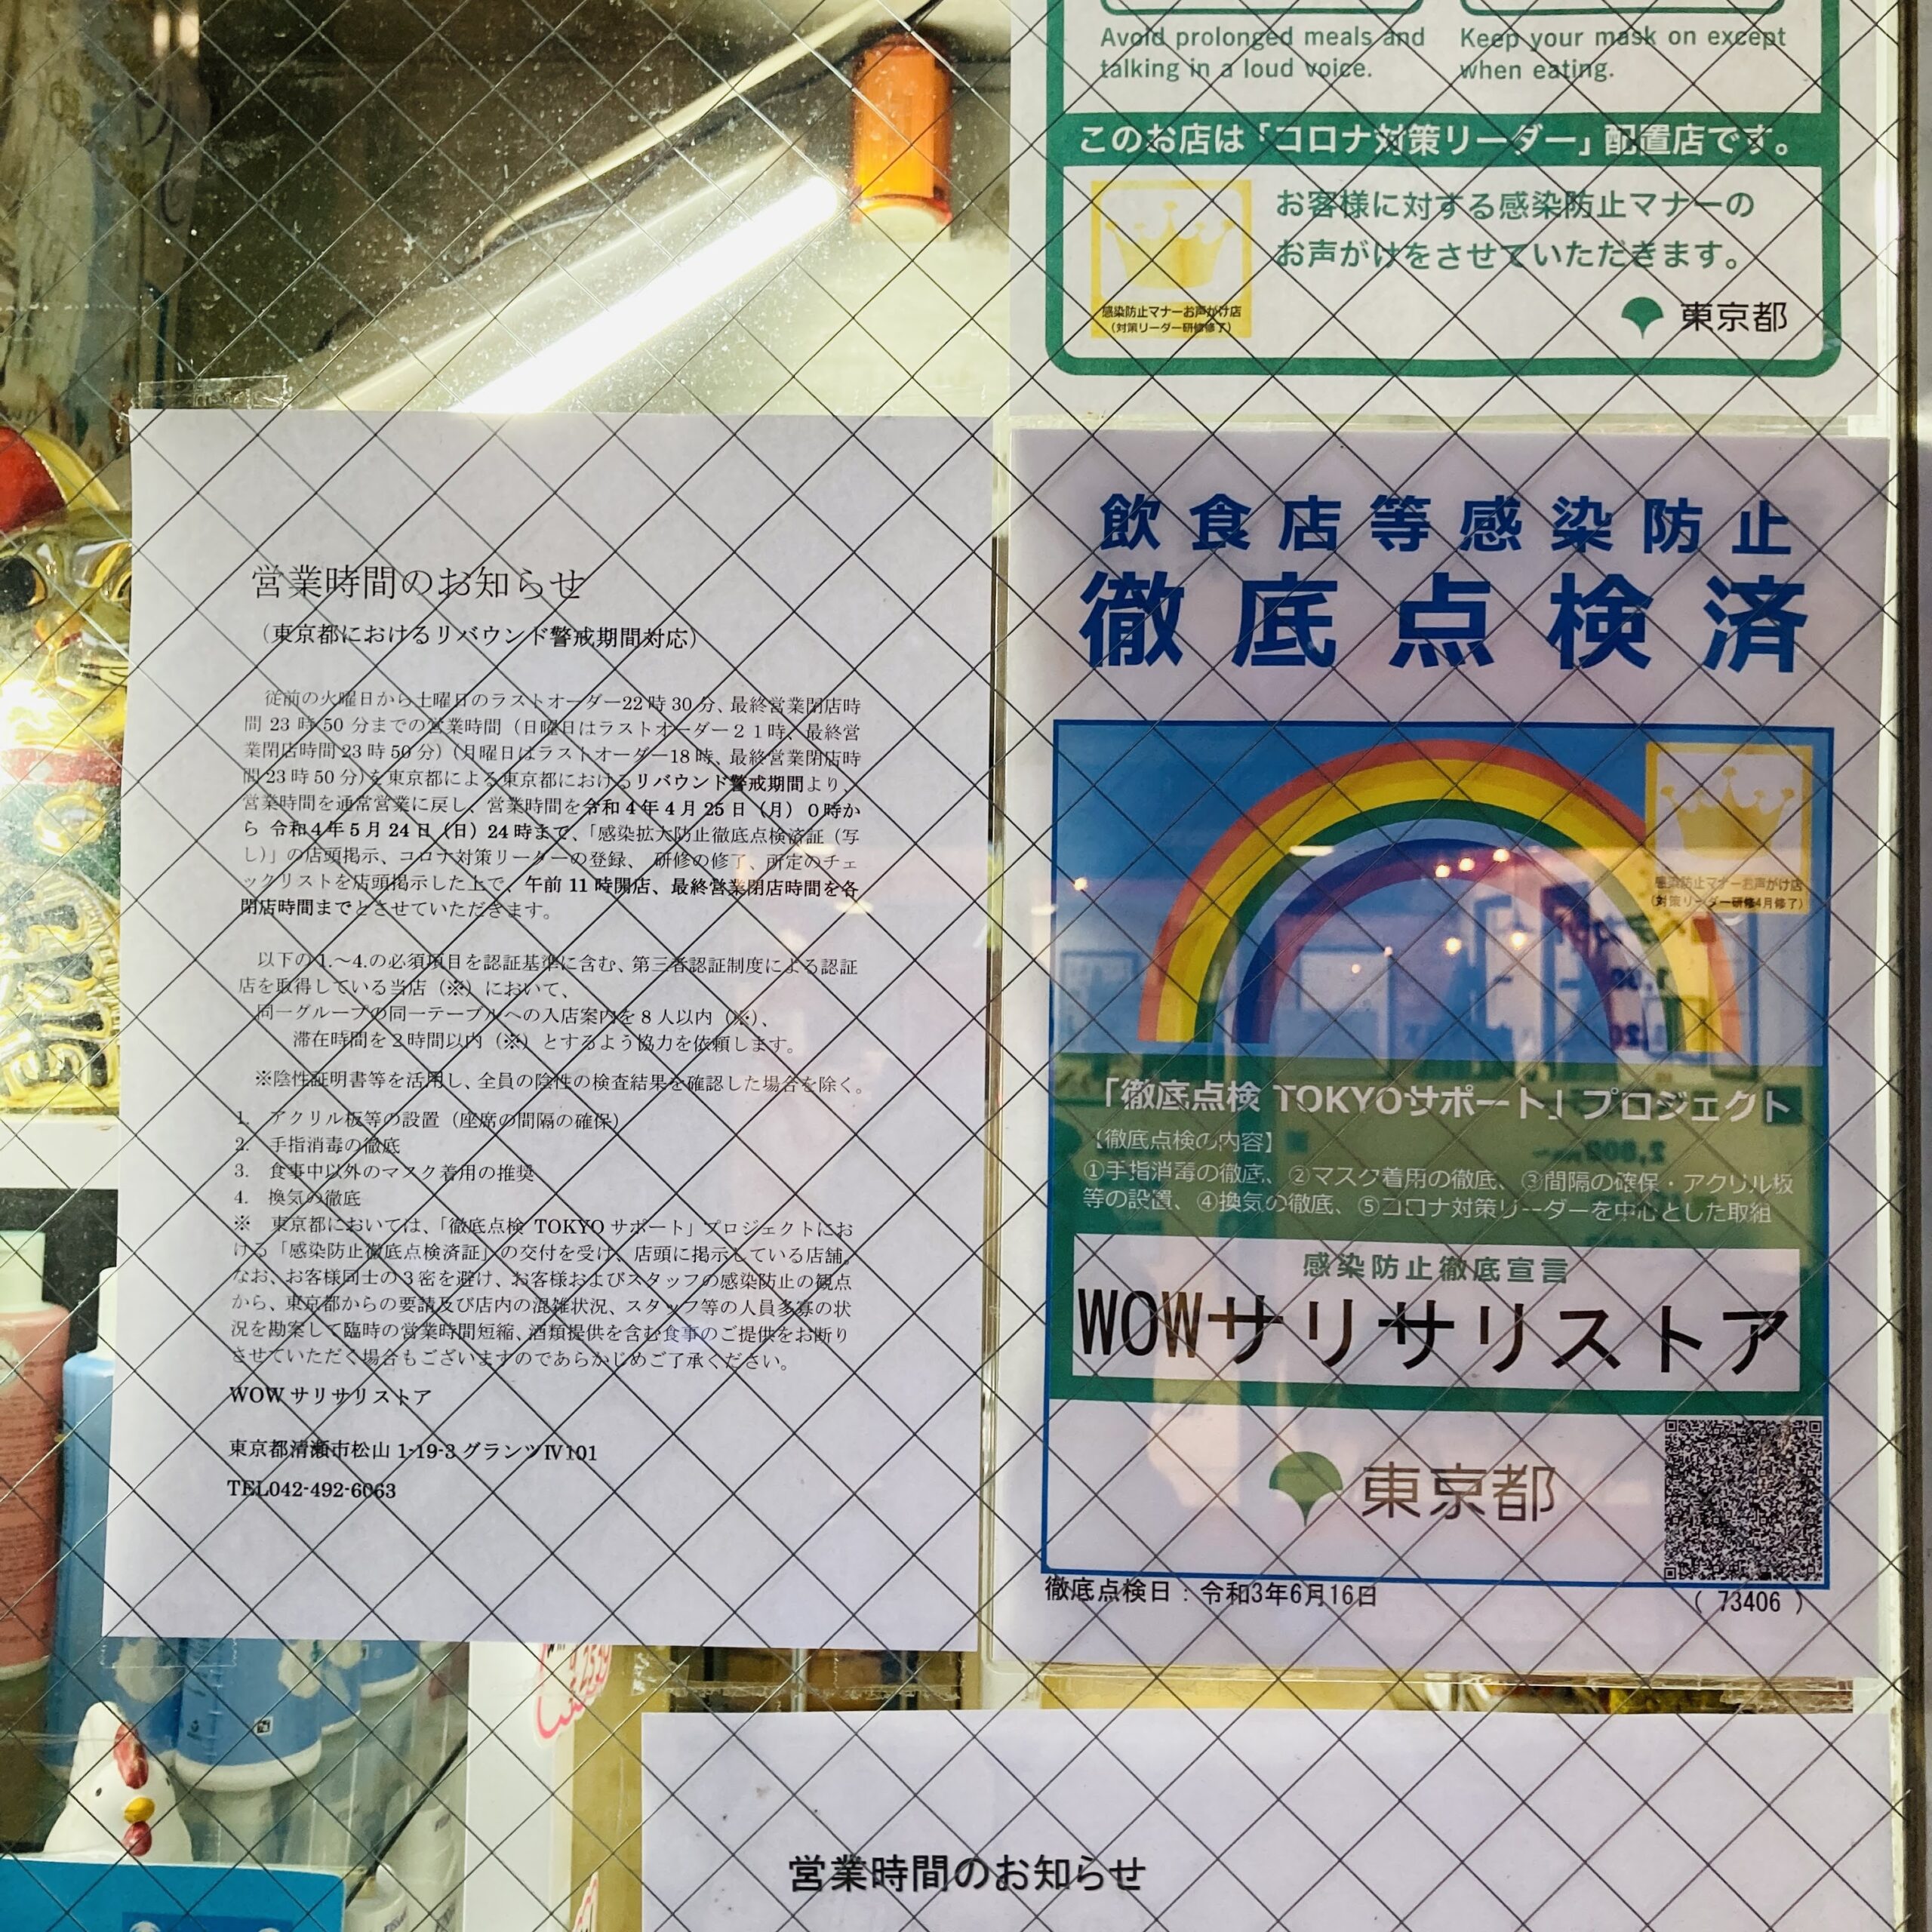 Avoid prolonged meals and
talking in a loud voice.
Keep your mask on except
when eating.
このお店は「コロナ対策リーダー」配置店です。
お客様に対する感染防止マナーの
お声がけをさせていただきます。
感染防止マナーお声がけ店
(対策リーダー研修修了)
東京都
営業時間のお知らせ
(東京都におけるリバウンド警戒期間対応)
従前の火曜日から土曜日のラストオーダー22時30分、最終営業閉店時
間 23 時 50 分までの営業時間(日曜日はラストオーダー21時、最終営
業閉店時間 23 時 50 分)(月曜日はラストオーダー18時、最終営業閉店時
間 23 時 50 分)を東京都による東京都におけるリバウンド警戒期間より、
営業時間を通常営業に戻し、営業時間を令和4年4月25日(月)0時か
ら 令和4年5月24日(日)24時まで、「感染拡大防止徹底点検済証(写
し)」の店頭掲示、コロナ対策リーダーの登録、 研修の修了、所定のチェ
ックリストを店頭掲示した上で、午前11時開店、最終営業閉店時間を各
閉店時間までとさせていただきます。
以下の1.～4.の必須項目を認証基準に含む、第三者認証制度による認証
店を取得している当店(※)において、
同一グループの同一テーブルへの入店案内を8人以内(※)、
滞在時間を2時間以内(※)とするよう協力を依頼します。
※陰性証明書等を活用し、全員の陰性の検査結果を確認した場合を除く。
1. アクリル板等の設置(座席の間隔の確保)
2. 手指消毒の徹底
3. 食事中以外のマスク着用の推奨
4. 換気の徹底
※ 東京都においては、「徹底点検 TOKYO サポート」プロジェクトにお
ける「感染防止徹底点検済証」の交付を受け、店頭に掲示している店舗。
なお、お客様同士の3密を避け、お客様およびスタッフの感染防止の観点
から、東京都からの要請及び店内の混雑状況、スタッフ等の人員多寡の状
況を勘案して臨時の営業時間短縮、酒類提供を含む食事のご提供をお断り
させていただく場合もございますのであらかじめご了承ください。
WOW サリサリストア
東京都清瀬市松山 1-19-3 グランツⅣ101
TEL042-492-6063
飲食店等感染防止
徹底点検済
感染防止マナーお声がけ店
(対策リーダー研修4月修了)
「徹底点検 TOKYOサポート」プロジェクト
【徹底点検の内容】
①手指消毒の徹底、②マスク着用の徹底、③間隔の確保・アクリル板
等の設置、④換気の徹底、⑤コロナ対策リーダーを中心とした取組
感染防止徹底宣言
WOWサリサリストア
東京都
徹底点検日:令和3年6月16日
( 73406 )
営業時間のお知らせ